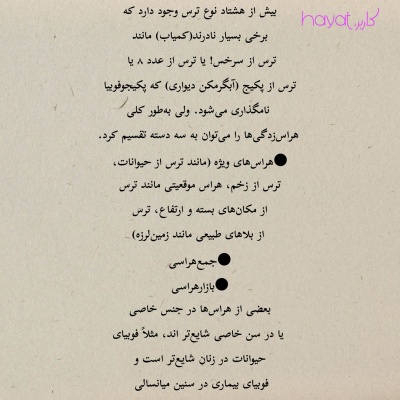 کاربر hayat
بیش از هشتاد نوع ترس وجود دارد که
برخی بسیار نادرند(کمیاب) مانند
ترس از سرخس! یا ترس از عدد ۸ یا
ترس از پکیج (آبگرمکن دیواری) که پکیجوفوبیا
نامگذاری می‌شود. ولی به‌طور کلی
هراس‌زدگی‌ها را می‌توان به سه دسته تقسیم کرد.
●هراس‌های ویژه (مانند ترس از حیوانات،
ترس از زخم، هراس موقعیتی مانند ترس
از مکان‌های بسته و ارتفاع، ترس
از بلاهای طبیعی مانند زمین‌لرزه)
●جمع‌هراسی
●بازارهراسی
بعضی از هراس‌ها در جنس خاصی
یا در سن خاصی شایع‌تر اند، مثلاً فوبیای
حیوانات در زنان شایع‌تر است و
فوبیای بیماری در سنین میانسالی